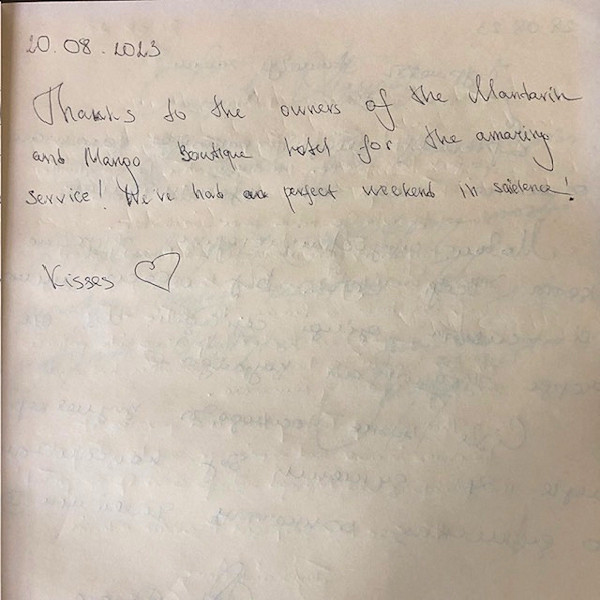 20.08.2023
Thanks to the owners of the Mandarin
and Mango Boutique hotel for the amazing
service! We've had a perfect weekend in saidence!
Kisses ♡